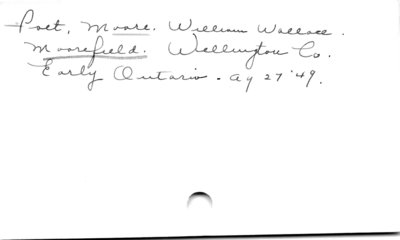 Poet, Moore. William Wallace.
Moorefield. Wellington Co.
Early Ontario. Ag 27 '49.